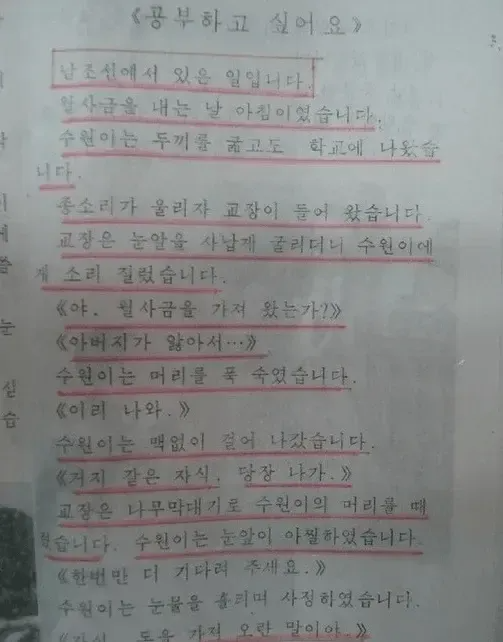 《공부하고 싶어요》
남조선에서 있은 일입니다.
월사금을 내는 날 아침이였습니다.
수원이는 두끼를 굶고도 학교에 나왔습
니다.
종소리가 울리자 교장이 들어 왔습니다.
교장은 눈알을 사납게 굴리더니 수원이에
게 소리 질렀습니다.
《야. 월사금을 가져 왔는가?》
《아버지가 앓아서…》
수원이는 머리를 푹 숙였습니다.
《이리 나와.》
수원이는 맥없이 걸어 나갔습니다.
《거지 같은 자식. 당장 나가.》
교장은 나무막대기로 수원이의 머리를 때
렸습니다. 수원이는 눈앞이 아찔하였습니다.
《한번만 더 기다려 주세요.》
수원이는 눈물을 흘리며 사정하였습니다.
돈을 가져 오란 말이야.》